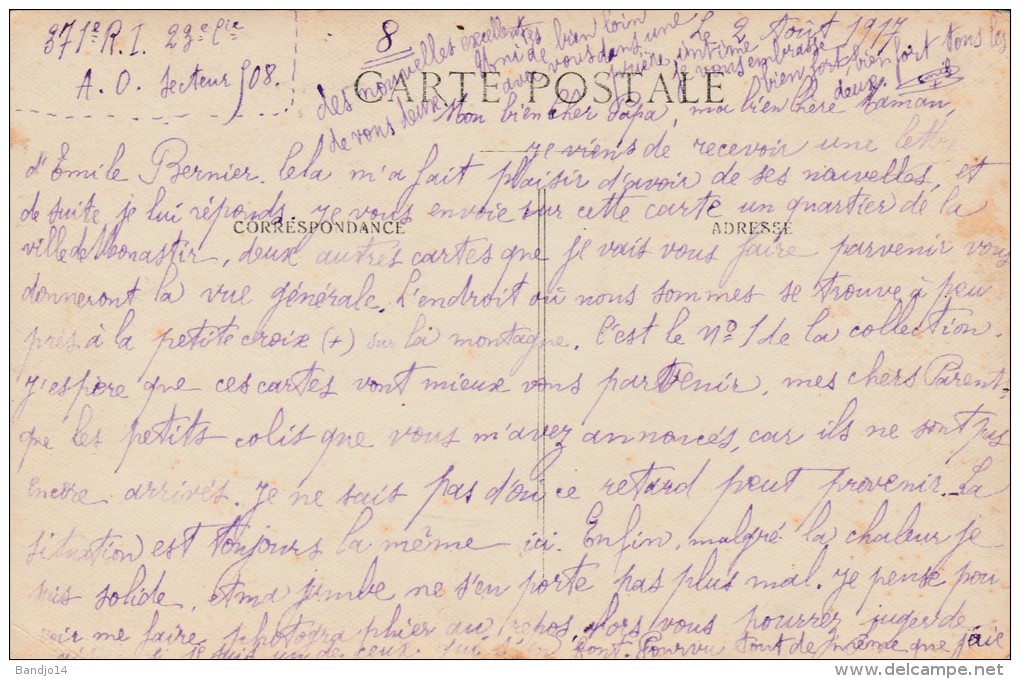 371e R.I. 23e Cie
A. O. Secteur 508.
8
Le 2 Août 1917
CARTE POSTALE
Mon bien cher Papa, ma bien chère Maman,
Je viens de recevoir une lettre
d'Emile Bernier. Cela m'a fait plaisir d'avoir de ses nouvelles, et
de suite je lui réponds. Je vous envoie sur cette carte un quartier de la
CORRESPONDANCE
ADRESSE
ville de Monastir, deux autres cartes que je vais vous faire parvenir vous
donneront la vue générale. L'endroit où nous sommes se trouve à peu
près à la petite croix (+) sur la montagne. C'est le no 1 de la collection.
J'espère que ces cartes vont mieux vous parvenir, mes chers Parents
que les petits colis que vous m'avez annoncés, car ils ne sont pas
encore arrivés. Je ne sais pas d'où ce retard peut provenir. La
situation est toujours la même ici. Enfin, malgré la chaleur je
suis solide, et ma jambe ne s'en porte pas plus mal. Je pense pou
voir me faire photographier au repos, alors vous pourrez juger de
si je suis un de ceux qui s'en font. Pourvu tout de même que j'aie
des nouvelles excellentes
de vous deux
Uni de bien loin
avec vous dans une
prière intime
je vous embrasse
bien fort
deux
bien fort tous les
Bandjo14
©DELCAMPE.NET